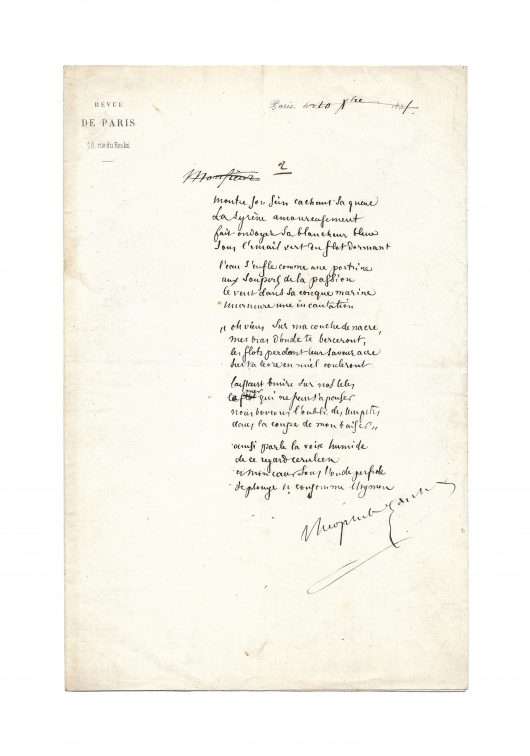 REVUE
DE PARIS
Paris
Monsieur
2
montre son sein cachant sa queue
La syrène amoureusement
fait ondoyer sa blancheur bleue
sous l'email vert du flot dormant
l'eau s'enfle comme une poitrine
aux soupirs de la passion
le vent dans sa conque marine
murmure une incantation
„ oh viens sur ma couche de nacre,
mes bras d'onde te berceront,
les flots perdant leur saveur acre
sur ta levre en miel couleront
laissant bruire sur nos tetes
la mer qui ne peut s'apaiser
nous boirons l'oubli des tempetes
dans la coupe de mon baiser „
ainsi parle la voix humide
de ce regard ceruleen
et mon cœur sous l'onde perfide
se plonge et consomme l'hymen
Théophile Gautier